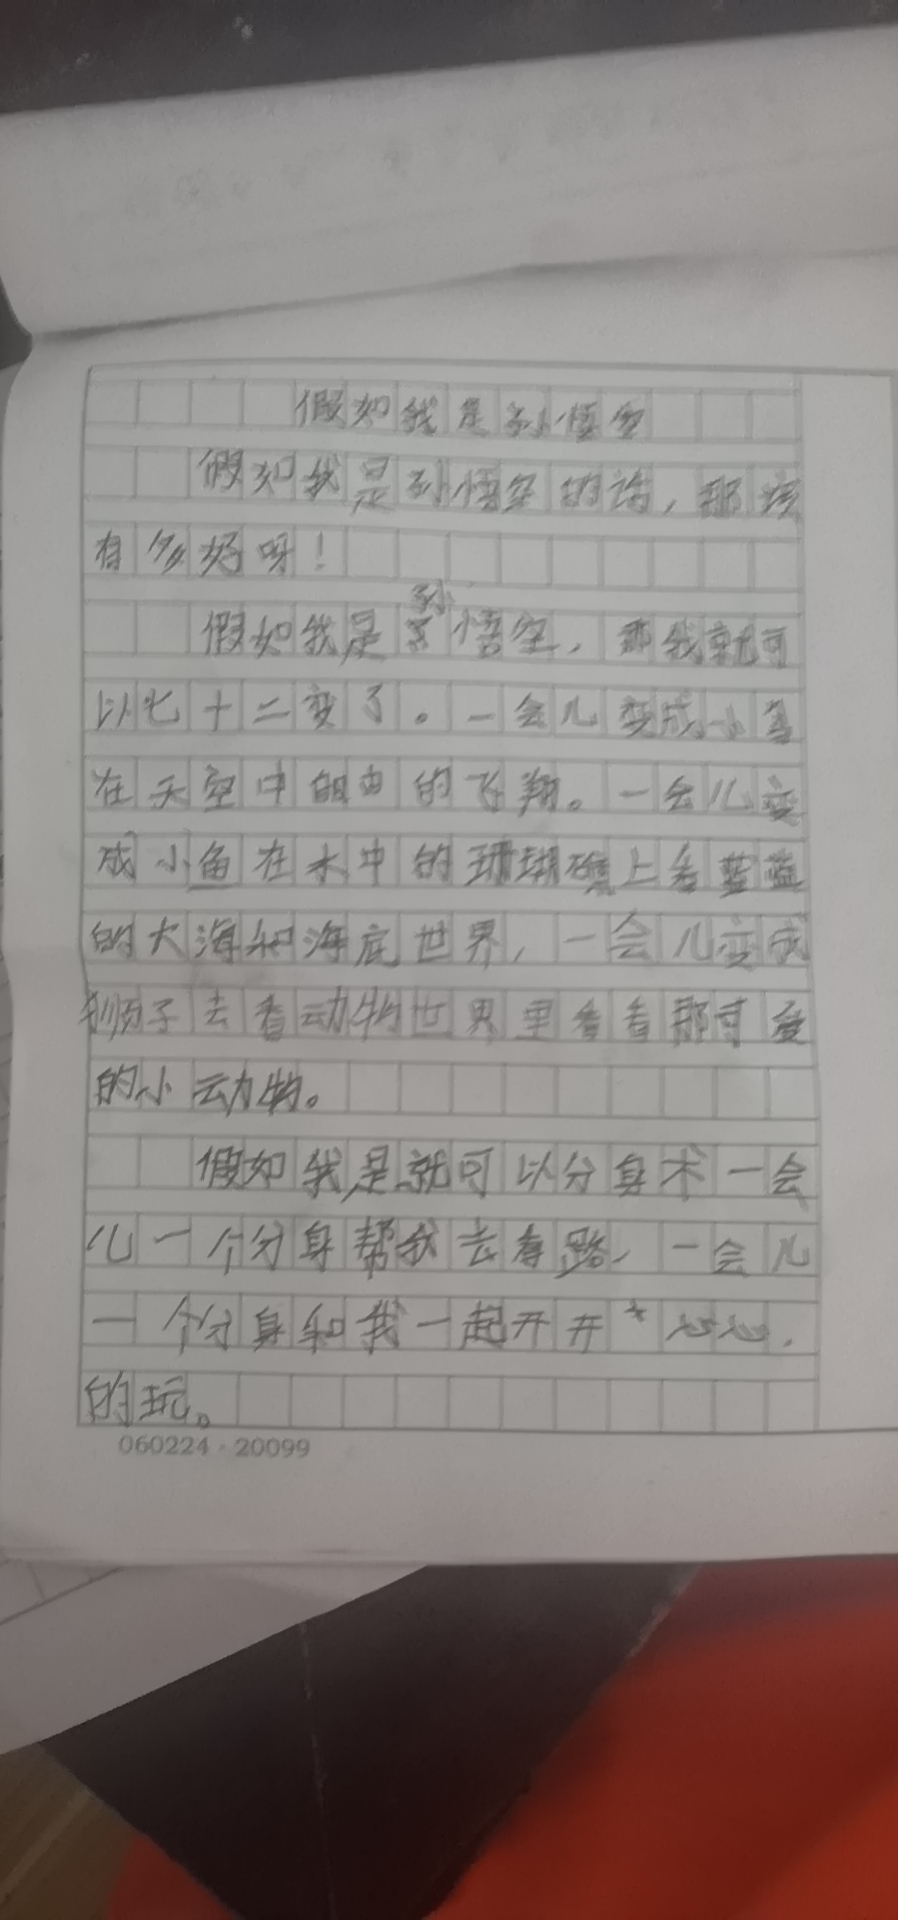 假如我是孙悟空
假如我是孙悟空的话，那该
有多好呀！
孙
假如我是悟空，那我就可
以七十二变了。一会儿变成小鸟
在天空中自由的飞翔。一会儿变
成小鱼在水中的珊瑚礁上看蓝蓝
的大海和海底世界，一会儿变成
狮子去看动物世界里看看那可爱
的小动物。
假如我是就可以分身术一会
儿一个分身帮我去看路，一会儿
一个分身和我一起开开心心
的玩。
060224·20099